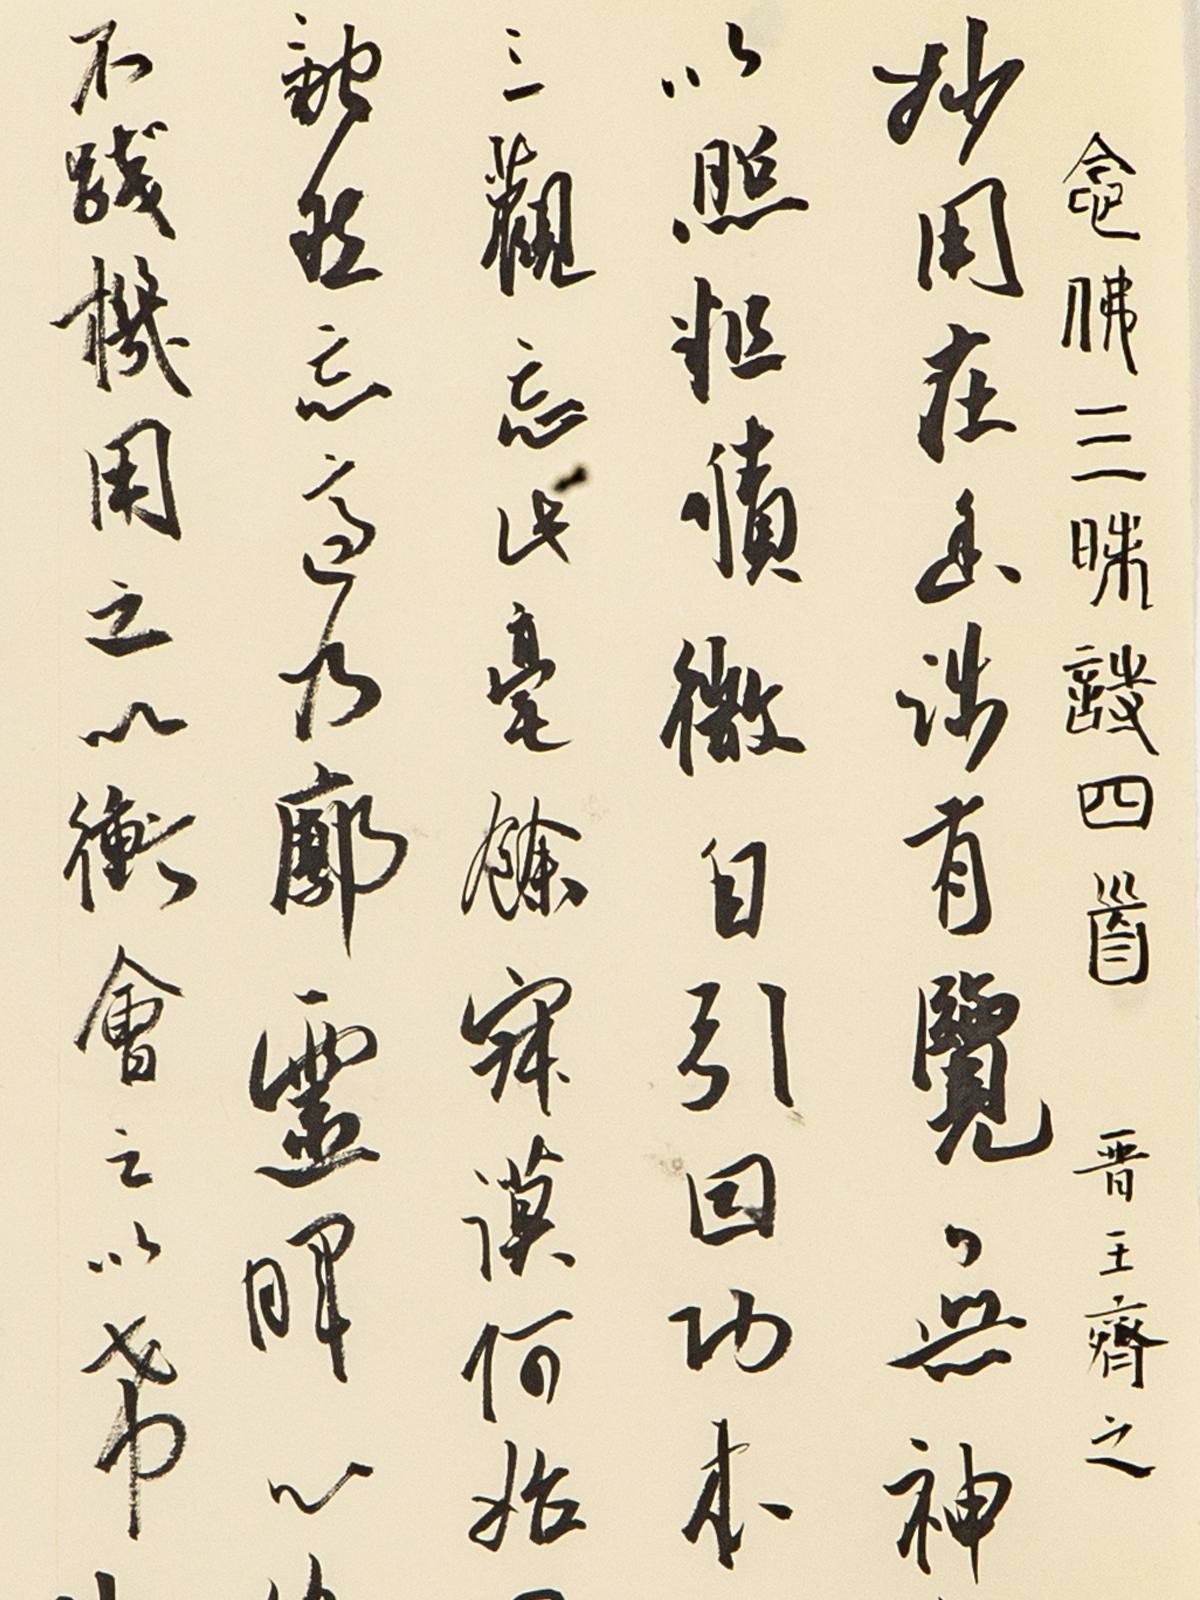 念佛三昧詩四首 晉王齊之
妙用在幽涉有覽無神
以照粗積微自引因功本
三觀忘此毫餘寂漠何始
融然忘適乃廓靈暉心
不踐機用之以衝會之以希